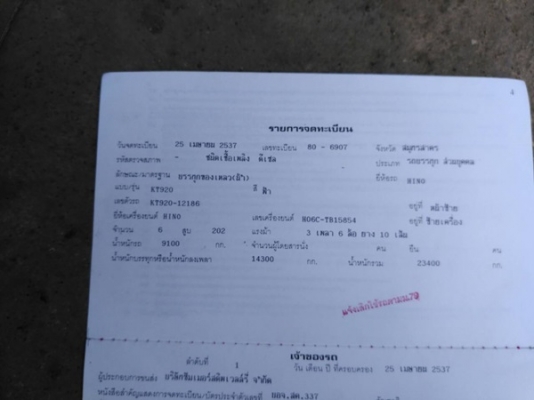 4
รายการจดทะเบียน
วันจดทะเบียน 25 เมษายน 2537 เลขทะเบียน 80 - 6907 จังหวัด สมุทรสาคร
รหัสตรวจสภาพ - ชนิดเชื้อเพลิง ดีเซล ประเภท รถบรรทุก ส่วนบุคคล
ลักษณะ/มาตรฐาน บรรทุกของเหลว(น้ำ) ยี่ห้อรถ HINO
แบบ/รุ่น KT920 สี ฟ้า
เลขตัวรถ KT920-12186 อยู่ที่
ยี่ห้อเครื่องยนต์ HINO เลขเครื่องยนต์ HO6C-TB15854 อยู่ที่ ซ้ายเครื่อง
จำนวน 6 สูบ 202 แรงม้า 3 เพลา 6 ล้อ ยาง 10 เส้น
น้ำหนักรถ 9100 กก. จำนวนผู้โดยสารนั่ง คน ยืน คน
น้ำหนักบรรทุกหรือน้ำหนักลงเพลา 14300 กก. น้ำหนักรวม 23400 กก.
เจ้าของรถ
ลำดับที่ 1 วัน เดือน ปี ที่ครอบครอง 25 เมษายน 2537
ผู้ประกอบการขนส่ง
หนังสือสำคัญแสดงการจดทะเบียน/บัตรประจำตัวเลขที่